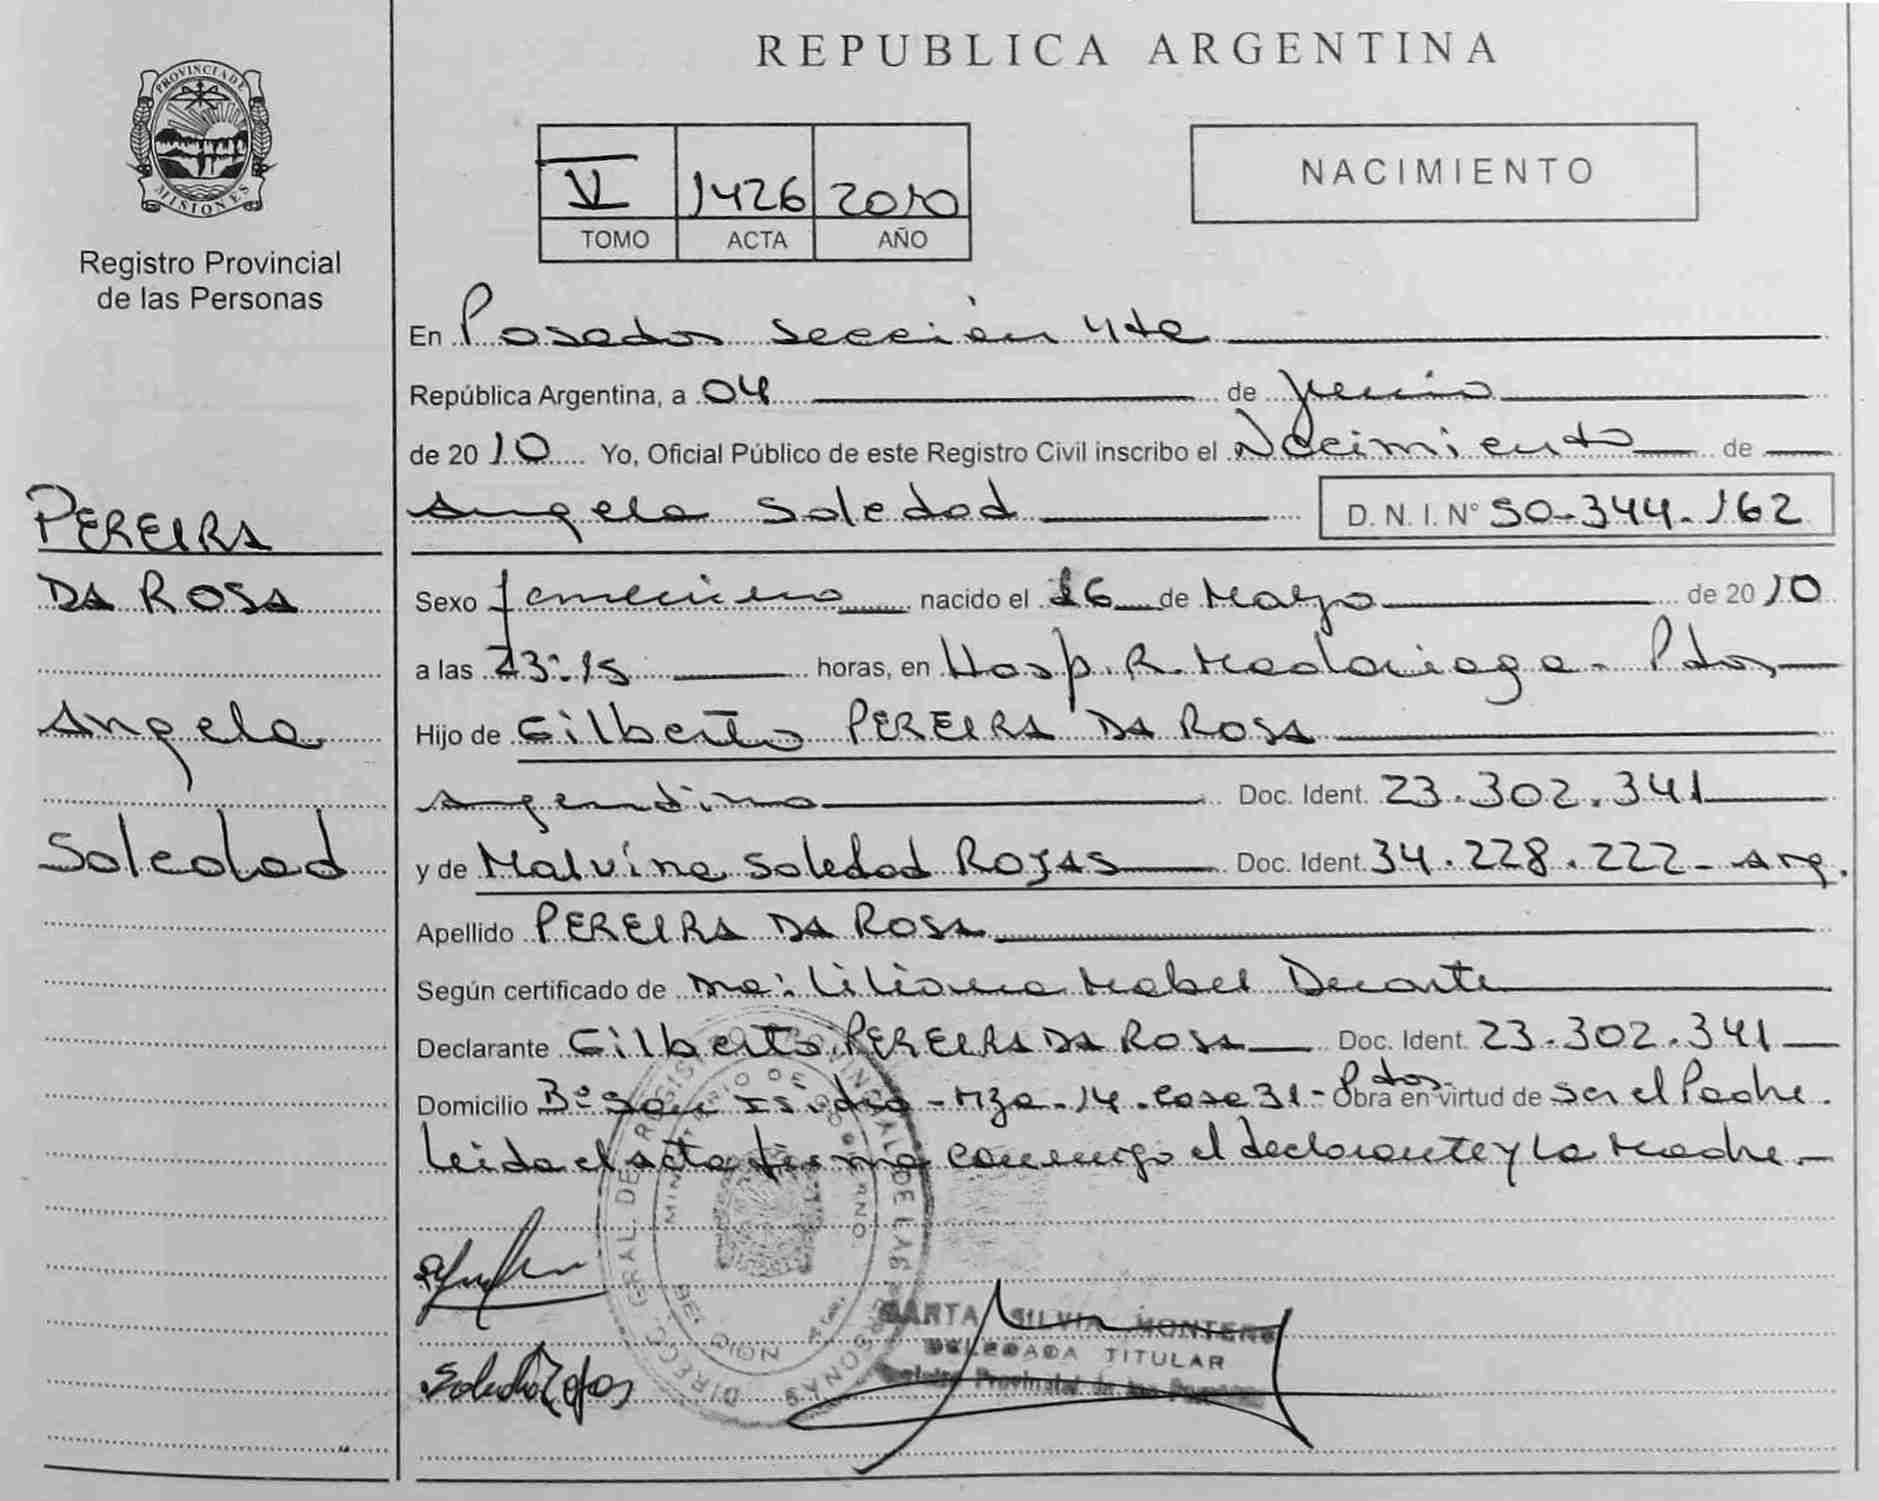 REPUBLICA ARGENTINA
PROVINCIA DE MISIONES
Registro Provincial
de las Personas
VI 1426 2010
TOMO ACTA AÑO
NACIMIENTO
En Posadas sección 4ta
República Argentina, a 04 de junio
de 2010 Yo, Oficial Público de este Registro Civil inscribo el Nacimiento de
Angela Soledad D. N. I. N° 50-344.162
PEREIRA
DA ROSA
Angela
Soledad
Sexo femenino nacido el 26 de Mayo de 2010
a las 23:15 horas, en Hosp. R. Madariaga - Pdas
Hijo de Gilberto PEREIRA DA ROSA
Argentino Doc. Ident. 23.302.341
y de Malvina Soledad ROJAS Doc. Ident. 34.228.222 - Arg.
Apellido PEREIRA DA ROSA
Según certificado de Liliana Mabel Duarte
Declarante Gilberto PEREIRA DA ROSA Doc. Ident. 23.302.341
Domicilio B° San Isidro - Mza. 14. Casa 31 - Pdas - Obra en virtud de ser el Padre.
Leida el acta firma conmigo el declarante y la Madre.-
DIRECC. GRAL. DE REGISTRO PROVINCIAL DE LAS PERSONAS
MINISTERIO DE GOBIERNO
Soledad Rojas
MARTA SILVIA MONTERO
DELEGADA TITULAR
Registro Provincial de las Personas